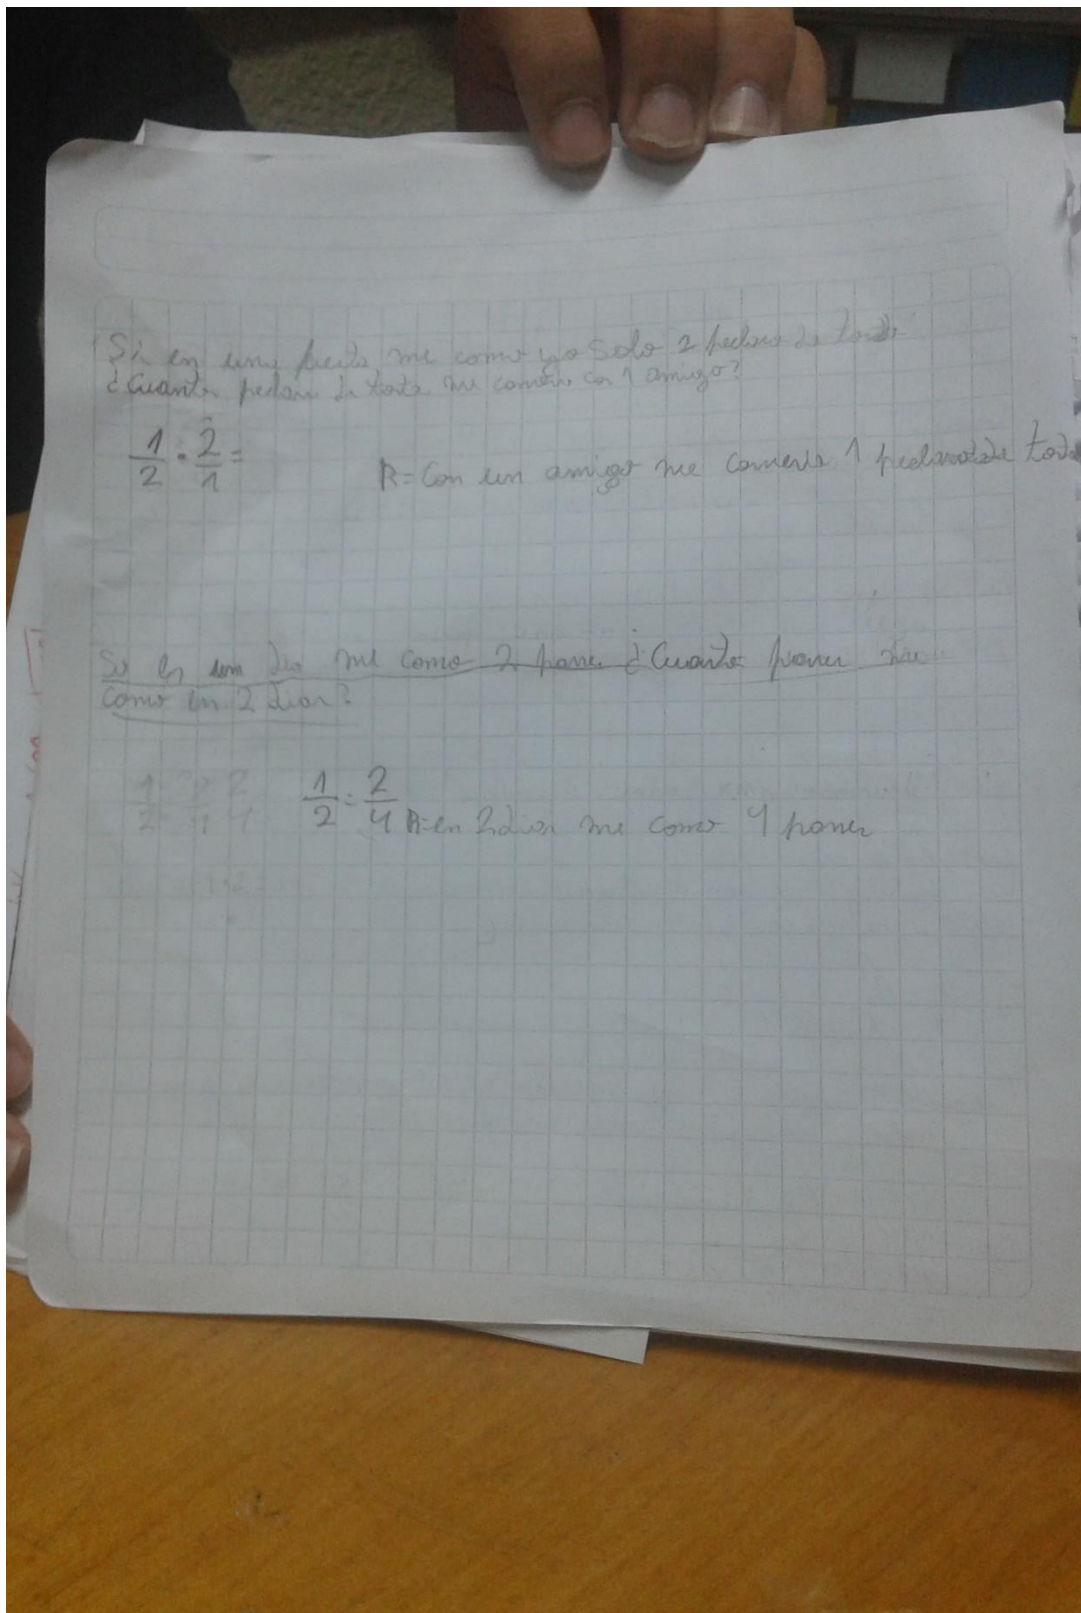 Si en una fiesta me como yo solo 2 pedazos de torta
¿Cuantos pedazos de torta me comería con 1 amigo?
1/2 · 2/1 =
R= Con un amigo me comería 1 pedazo de torta
Si en un dia me como 2 panes ¿Cuantos panes me
como en 2 dias?
1/2 = 2/4
R= en 2 dias me como 4 panes